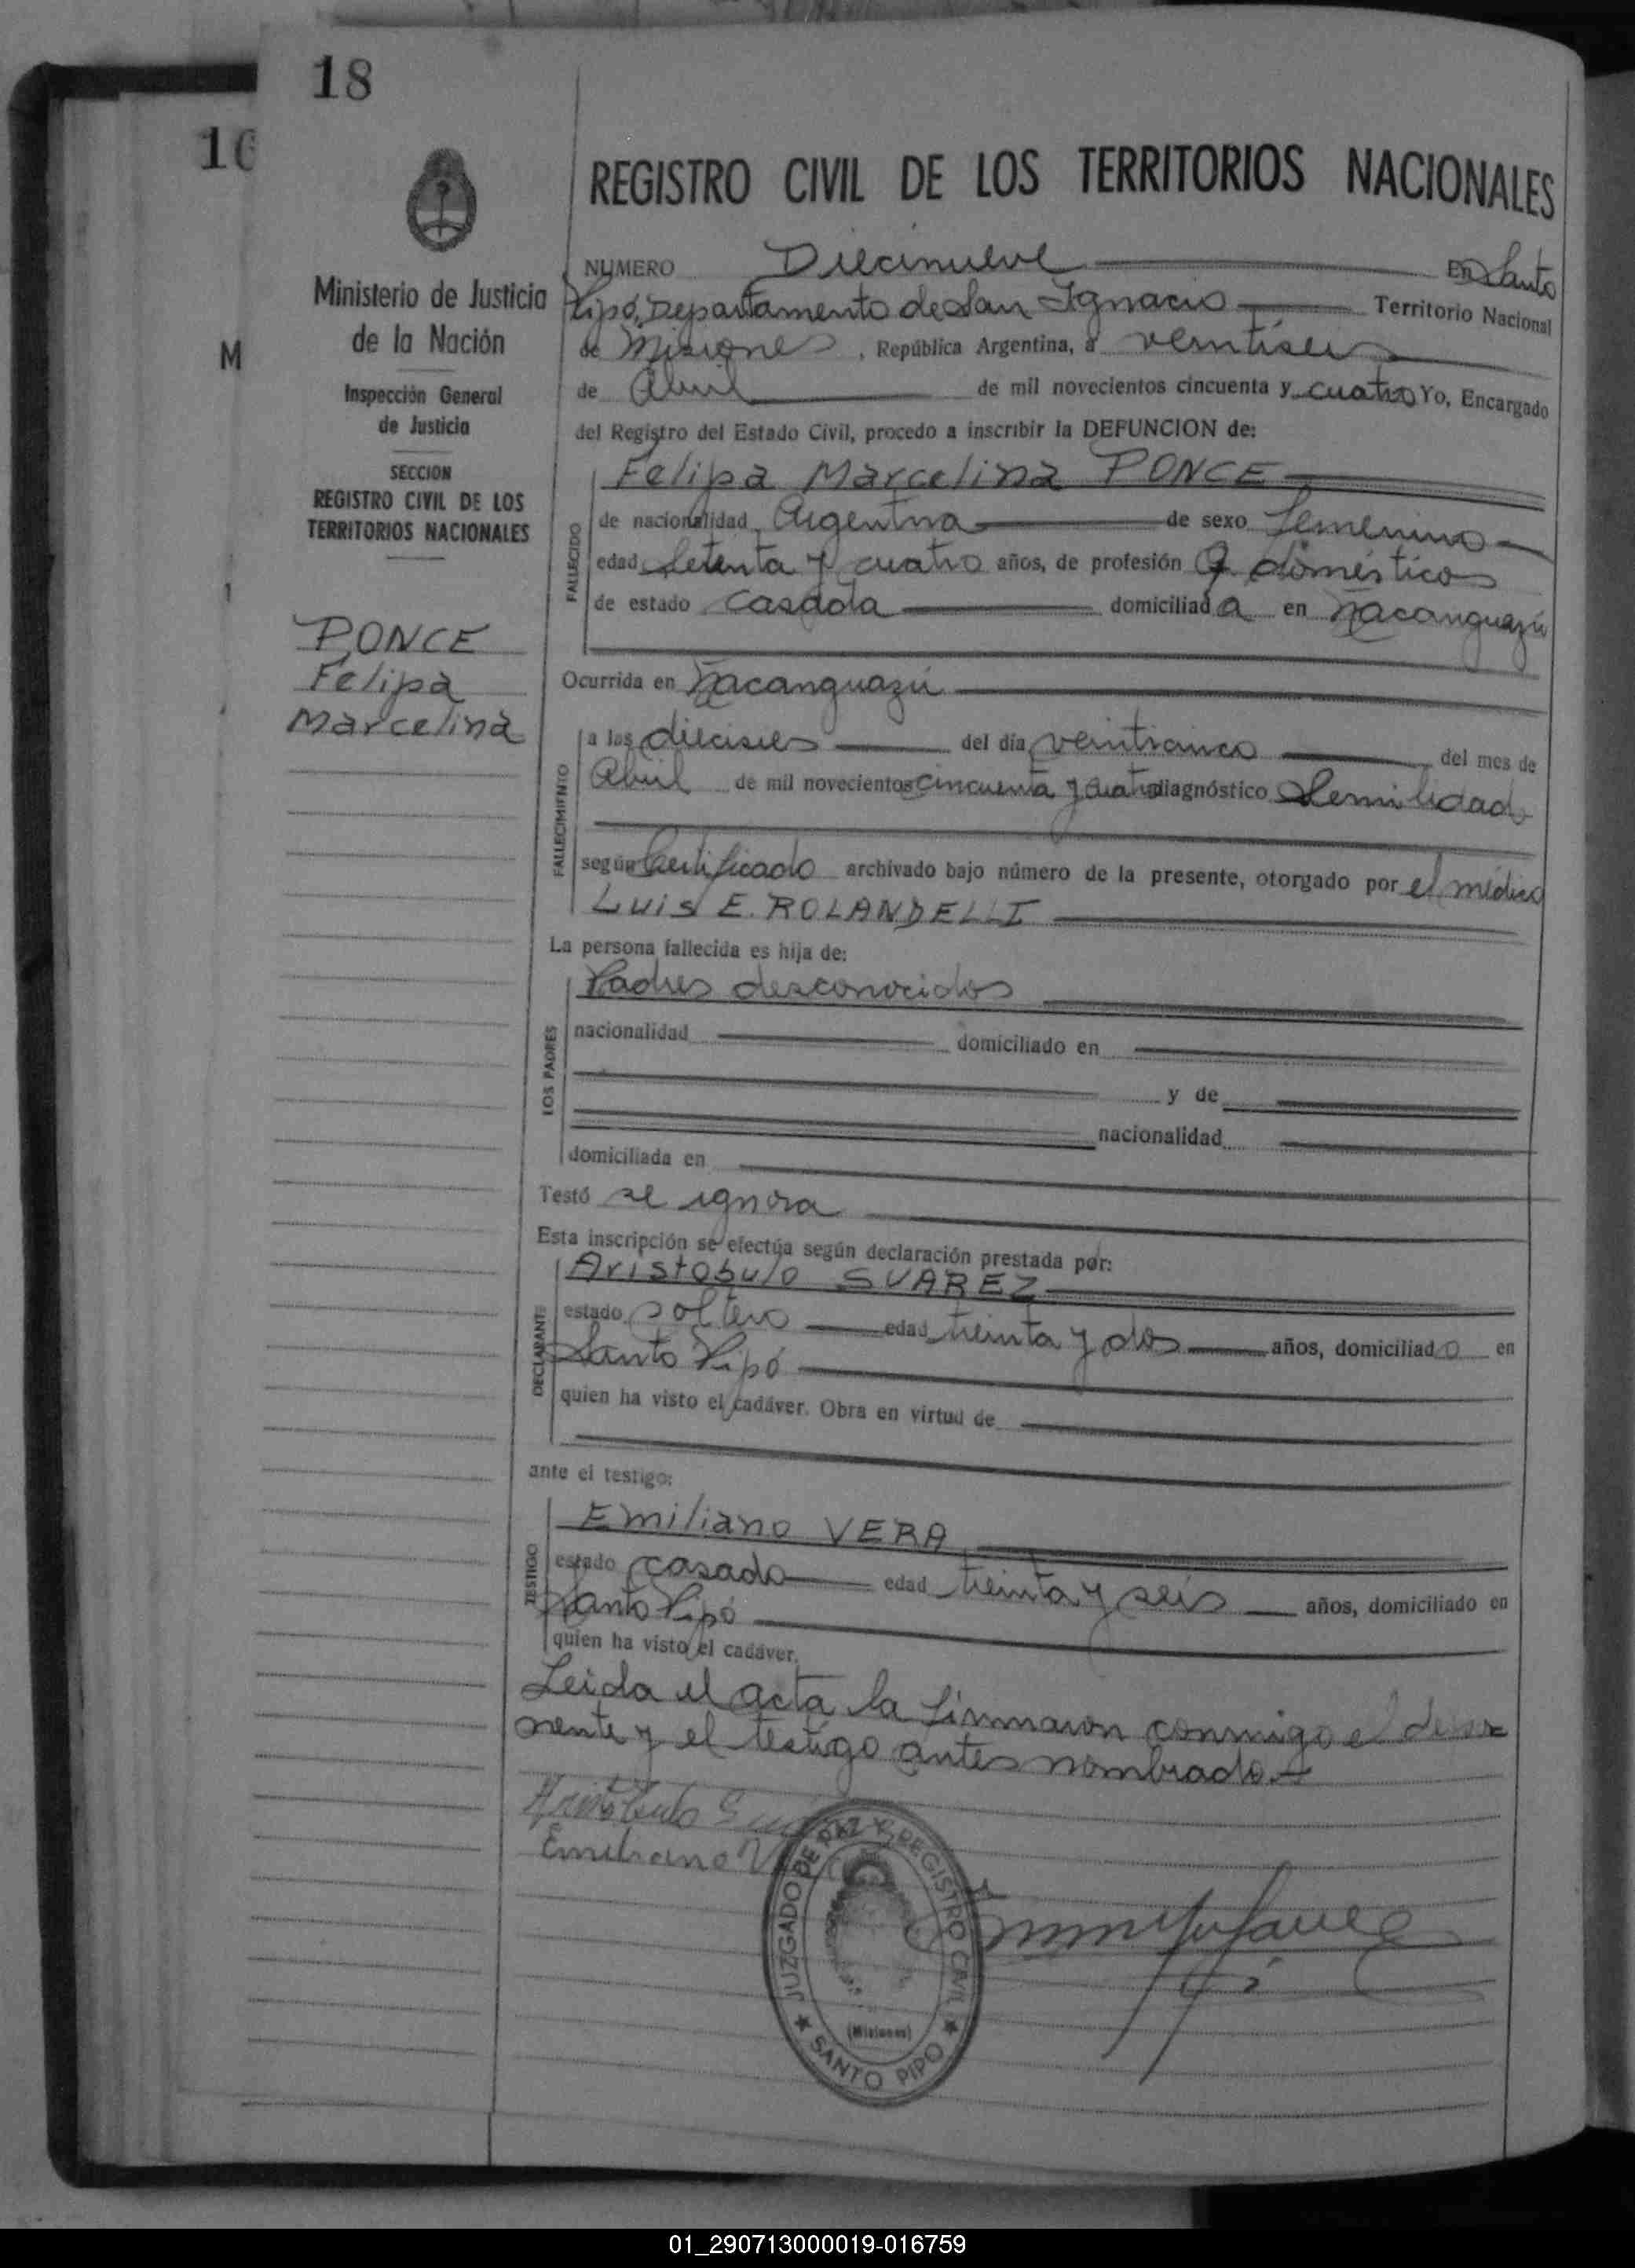 18
16
M
1
Ministerio de Justicia
de la Nación
Inspección General
de Justicia
SECCION
REGISTRO CIVIL DE LOS
TERRITORIOS NACIONALES
PONCE
Felipa
Marcelina
REGISTRO CIVIL DE LOS TERRITORIOS NACIONALES
NUMERO Diecinueve En Santo
Pipó, Departamento de San Ignacio Territorio Nacional
de Misiones, República Argentina, a veintiseis
de Abril de mil novecientos cincuenta y cuatro Yo, Encargado
del Registro del Estado Civil, procedo a inscribir la DEFUNCION de:
Felipa Marcelina PONCE
FALLECIDO
de nacionalidad Argentina de sexo femenino
edad setenta y cuatro años, de profesión Q. domésticos
de estado casada domiciliada en Ñacanguazú
Ocurrida en Ñacanguazú
FALLECIMIENTO
a las dieciseis del día veinticinco del mes de
Abril de mil novecientos cincuenta y cuatro diagnóstico Senilidad
según Certificado archivado bajo número de la presente, otorgado por el médico
LUIS E. ROLANDELLI
La persona fallecida es hija de:
LOS PADRES
Padres desconocidos
nacionalidad domiciliado en
y de
nacionalidad
domiciliada en
Testó se ignora
Esta inscripción se efectúa según declaración prestada por:
DECLARANTE
Aristobulo SUAREZ
estado soltero edad treinta y dos años, domiciliado en
Santo Pipó
quien ha visto el cadáver. Obra en virtud de
ante el testigo:
TESTIGO
Emiliano VERA
estado casado edad treinta y seis años, domiciliado en
Santo Pipó
quien ha visto el cadáver.
Leida el acta la firmaron conmigo el
nente y el testigo antes nombrado.
Aristobulo
Emiliano
JUZGADO DE PAZ Y REGISTRO CIVIL
(Misiones)
SANTO PIPO
01_290713000019-016759